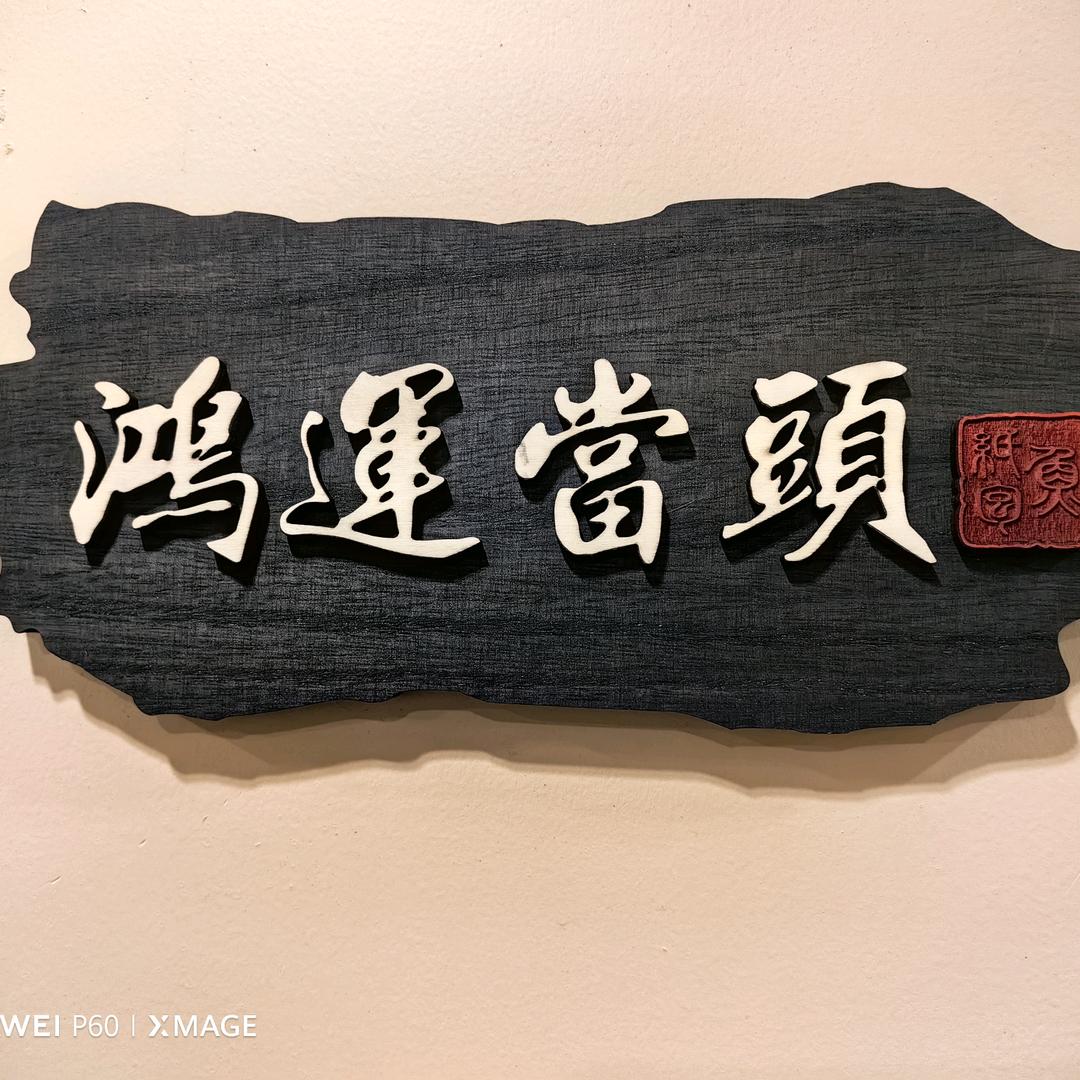 鴻運當頭
WEI P60 | XMAGE